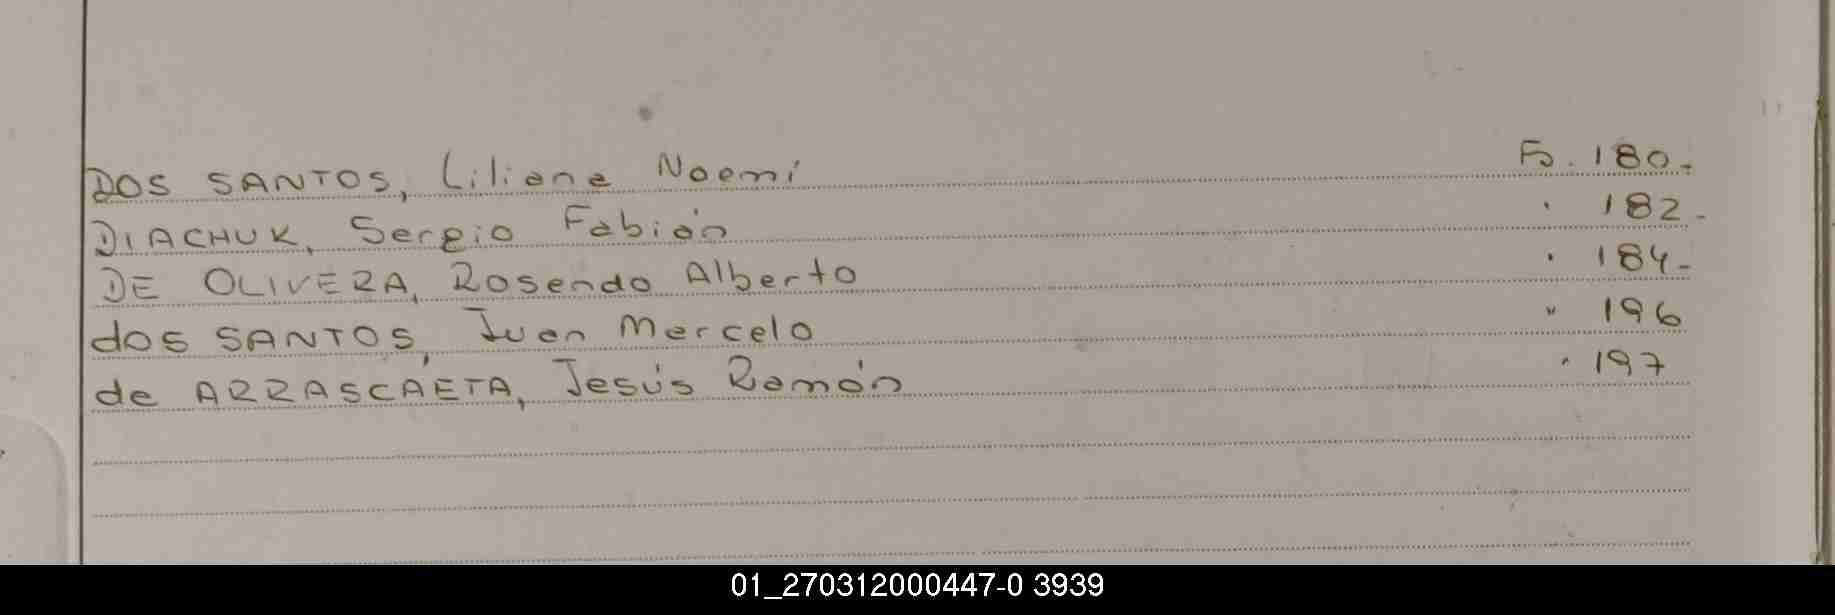 DOS SANTOS, Liliana Noemí Fo. 180.-
DIACHUK, Sergio Fabián " 182.-
DE OLIVERA, Rosendo Alberto " 184-
dos SANTOS, Juan Marcelo " 196
de ARRASCAETA, Jesús Ramón " 197
01_270312000447-0 3939